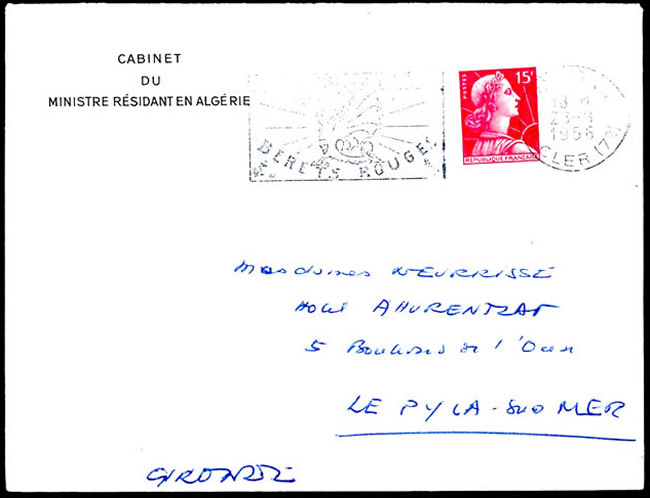 CABINET
DU
MINISTRE RÉSIDANT EN ALGÉRIE
BERETS ROUGES
POSTES
15F
REPUBLIQUE FRANÇAISE
18 H
23-
1956
CLER (7
Mesdames NEURRISSE
Hotel AHURENTZAT
5 Boulevard de l'Ocean
LE PYLA-SUR MER
GIRONDE